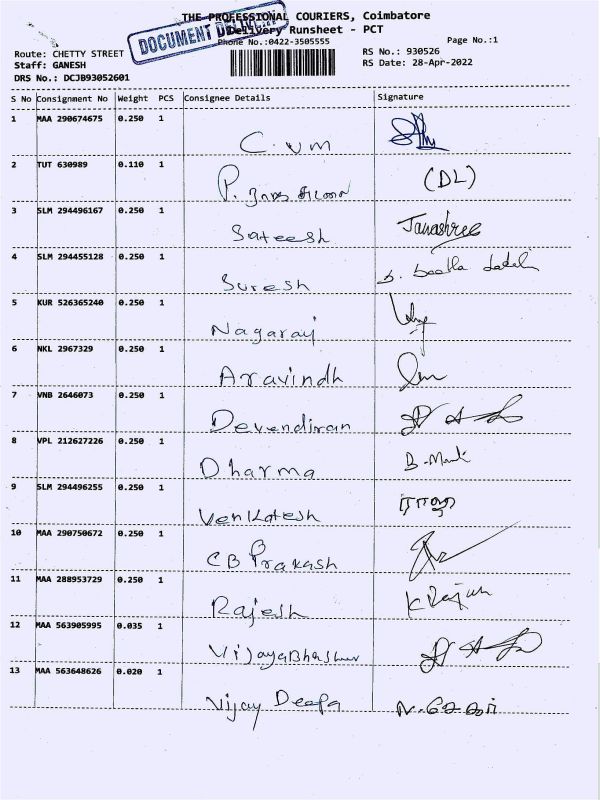 THE PROFESSIONAL COURIERS, Coimbatore
DOCUMENT DELIVERY
Delivery Runsheet - PCT
Phone No.:0422-3505555
Page No.:1
Route: CHETTY STREET
RS No.: 930526
Staff: GANESH
RS Date: 28-Apr-2022
DRS No.: DCJB93052601
S No Consignment No Weight PCS Consignee Details Signature
1 MAA 290674675 0.250 1
C. V M
2 TUT 630989 0.110 1
P. (DL)
3 SLM 294496167 0.250 1
Sateesh Janashree
4 SLM 294455128 0.250 1
Suresh
5 KUR 526365240 0.250 1
Nagaraj
6 NKL 2967329 0.250 1
Aravindh
7 VNB 2646073 0.250 1
Devendiran
8 VPL 212627226 0.250 1
Dharma B-Mani
9 SLM 294496255 0.250 1
Venkatesh
10 MAA 290750672 0.250 1
CB Prakash
11 MAA 288953729 0.250 1
Rajesh
12 MAA 563905995 0.035 1
VijayaBhaskar
13 MAA 563648626 0.020 1
Vijay Deepa